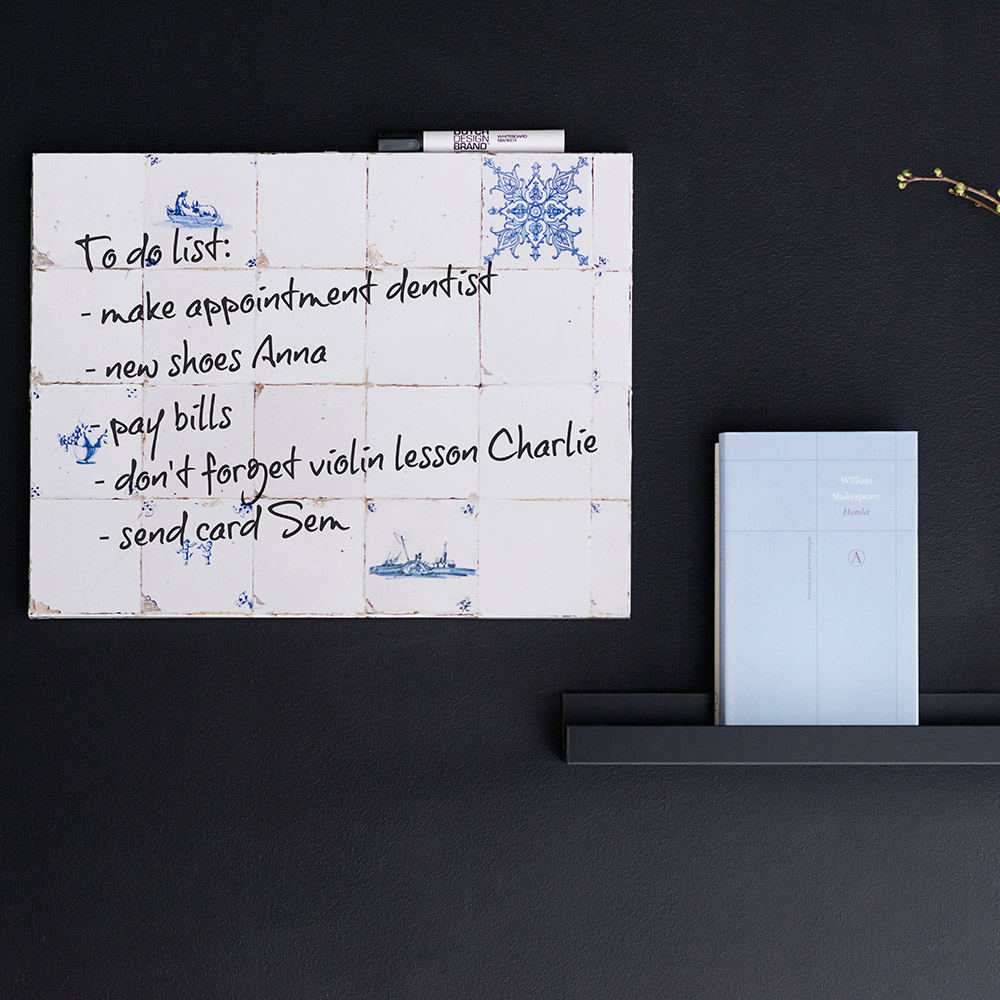 DUTCH
DESIGN
BRAND™
WHITEBOARD
MARKER
To do list:
- make appointment dentist
- new shoes Anna
- pay bills
- don't forget violin lesson Charlie
- send card Sem
William
Shakespeare
Hamlet
A